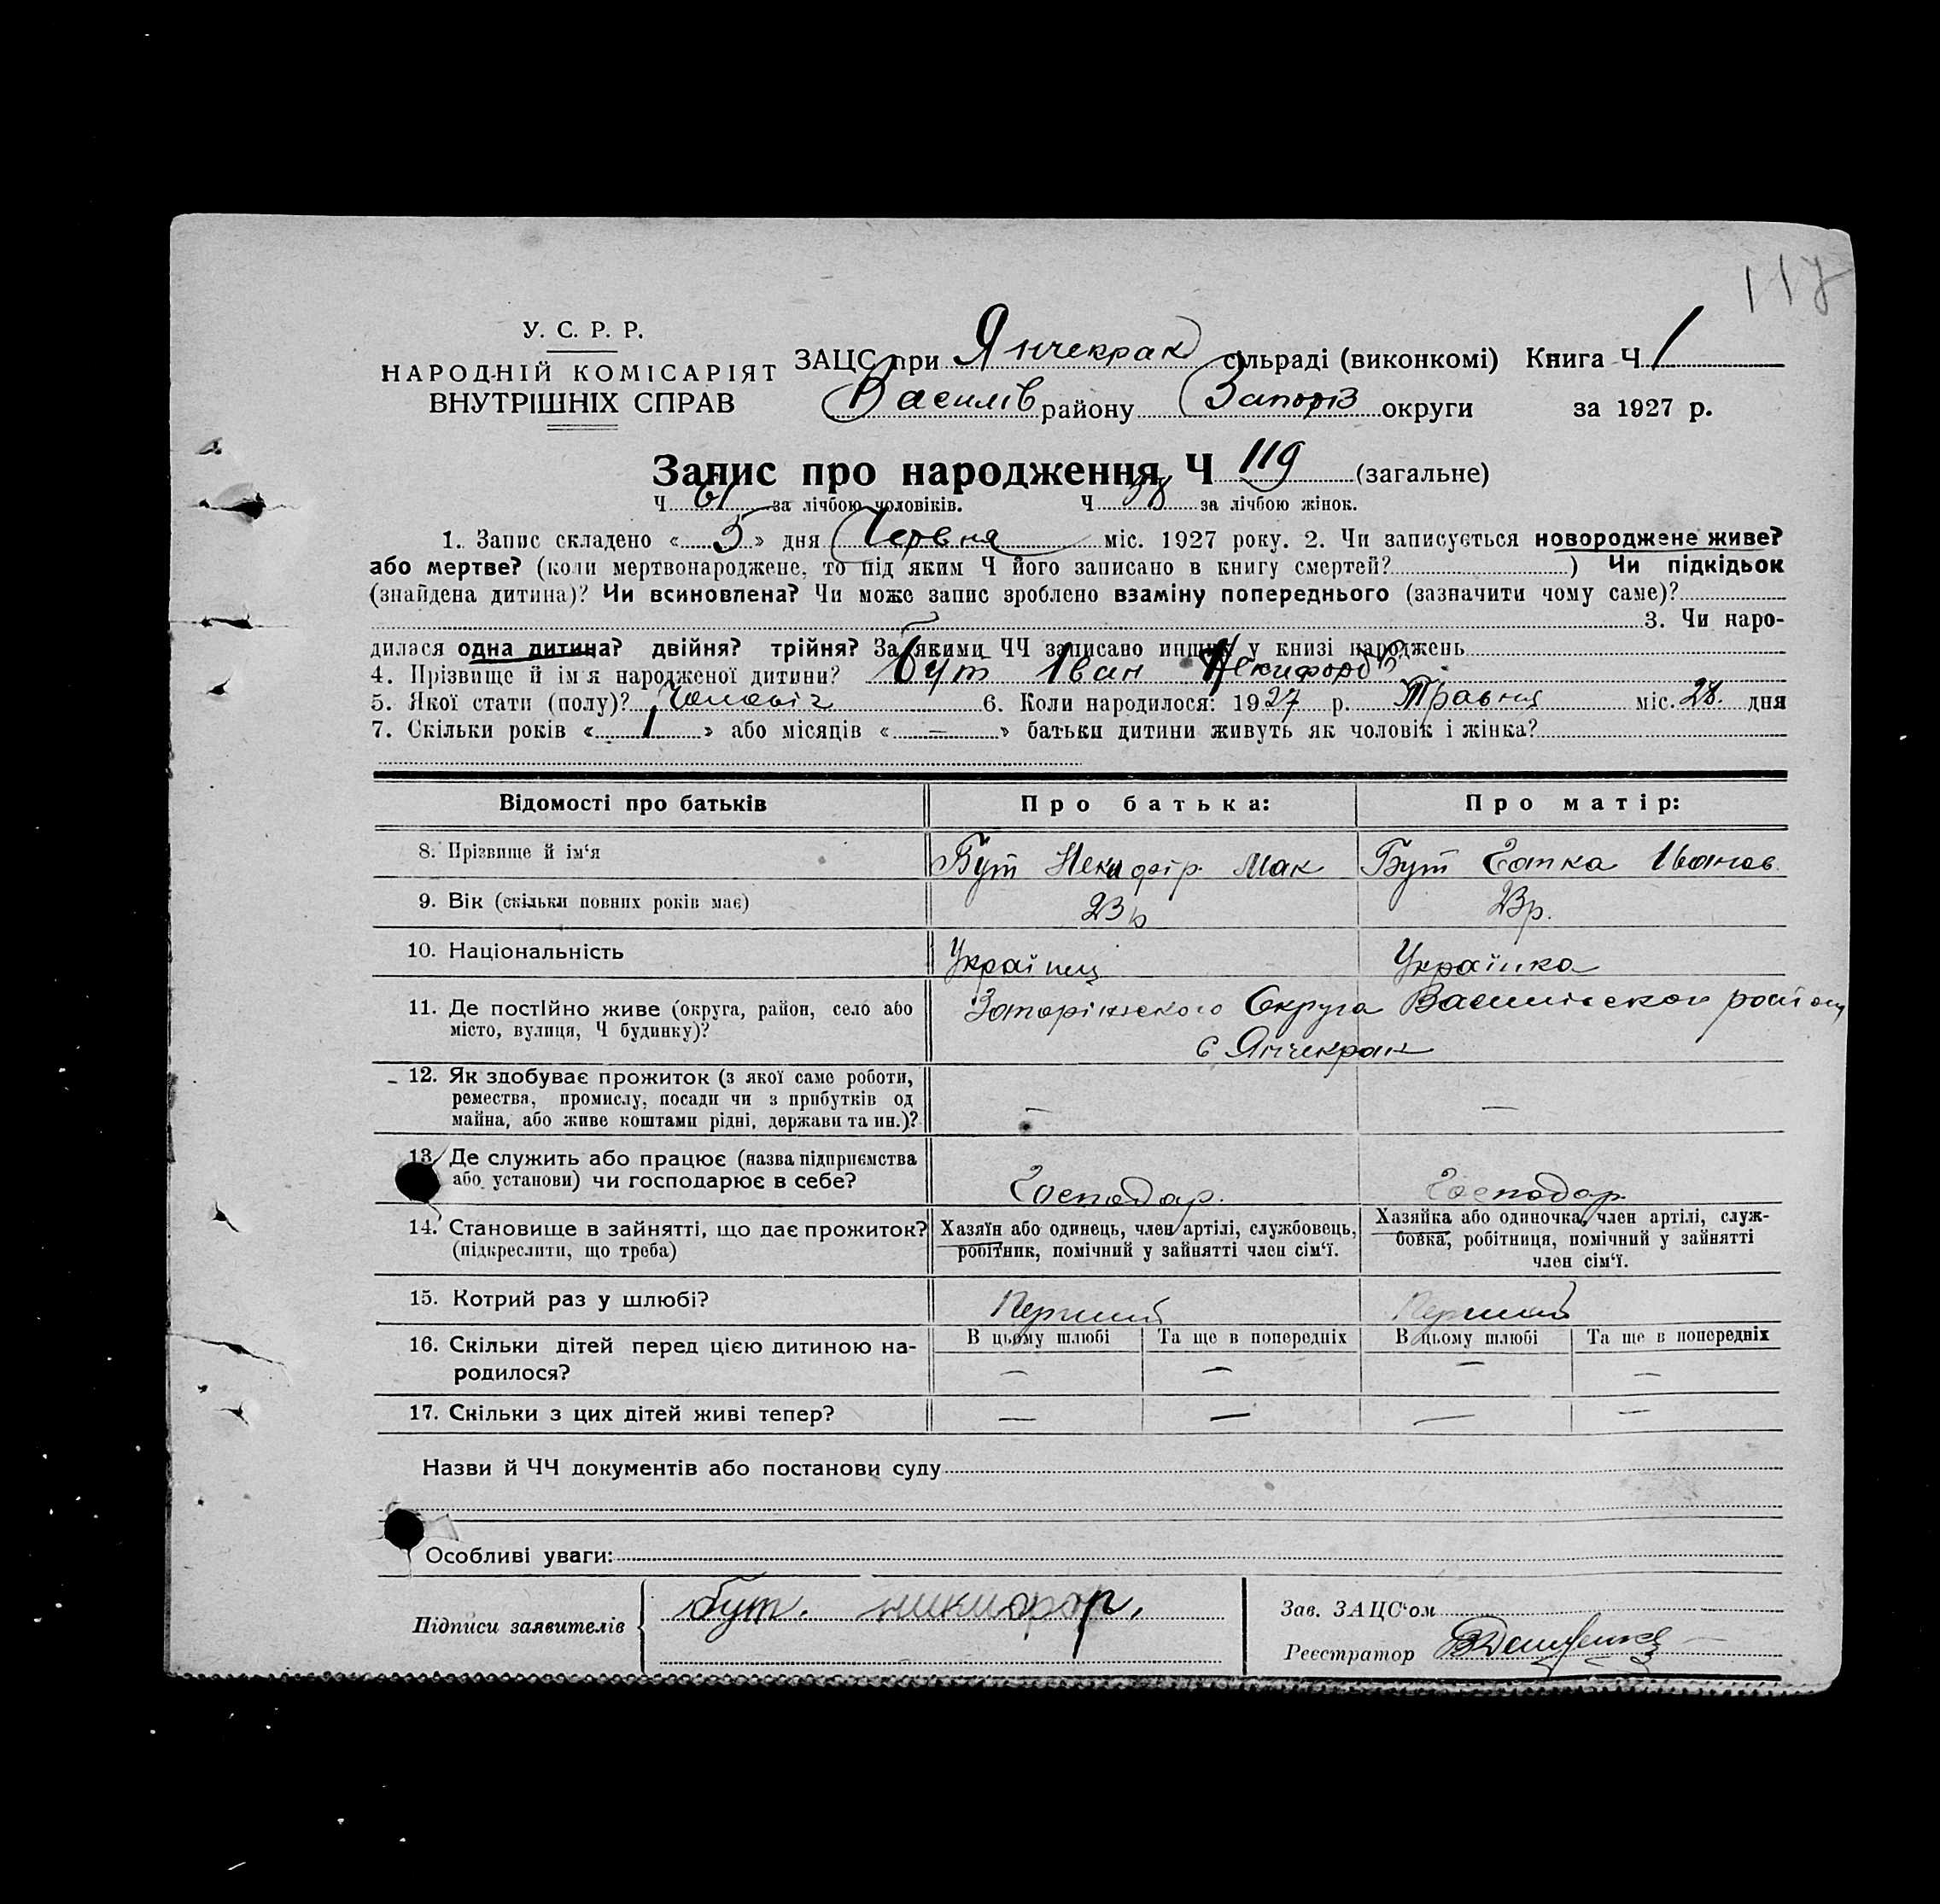 117
У. С. Р. Р.
НАРОДНІЙ КОМІСАРІЯТ
ВНУТРІШНІХ СПРАВ
ЗАЦС при Янчекрак сільраді (виконкомі) Книга Ч 1
Василів району Запоріз округи за 1927 р.
Запис про народження Ч 119 (загальне)
Ч 61 за лічбою чоловіків. Ч 58 за лічбою жінок.
1. Запис складено « 5 » дня Червня міс. 1927 року. 2. Чи записується новороджене живе?
або мертве? (коли мертвонароджене, то під яким Ч його записано в книгу смертей? ) Чи підкідьок
(знайдена дитина)? Чи всиновлена? Чи може запис зроблено взаміну попереднього (зазначити чому саме)?
3. Чи наро-
дилася одна дитина? двійня? трійня? За якими ЧЧ записано инших у книзі народжень
4. Прізвище й ім'я народженої дитини? Бут Іван Некифорів
5. Якої стати (полу)? Чоловіч 6. Коли народилося: 1927 р. Травня міс. 28. дня
7. Скільки років « 1 » або місяців « — » батьки дитини живуть як чоловік і жінка?
Відомості про батьків Про батька: Про матір:
8. Прізвище й ім'я Бут Некифір Мак Бут Іванов.
9. Вік (скільки повних років має) 23 р 23 р.
10. Національність Українец Українка
11. Де постійно живе (округа, район, село або Запоріжського Округа Василівского району
місто, вулиця, Ч будинку)? с Янчекрак
12. Як здобуває прожиток (з якої саме роботи,
ремества, промислу, посади чи з прибутків од
майна, або живе коштами рідні, держави та ин.)? — —
13. Де служить або працює (назва підприємства
або установи) чи господарює в себе? Господар. Господар.
14. Становище в зайнятті, що дає прожиток? Хазяїн або одинець, член артілі, службовець, Хазяйка або одиночка, член артілі, служ-
(підкреслити, що треба) робітник, помічний у зайнятті член сім'ї. бовка, робітниця, помічний у зайнятті
член сім'ї.
15. Котрий раз у шлюбі? Перший Перший
16. Скільки дітей перед цією дитиною на- В цьому шлюбі Та ще в попередніх В цьому шлюбі Та ще в попередніх
родилося? — — — —
17. Скільки з цих дітей живі тепер? — — — —
Назви й ЧЧ документів або постанови суду
Особливі уваги:
Підписи заявителів бут. никифор. Зав. ЗАЦС'ом
Реєстратор